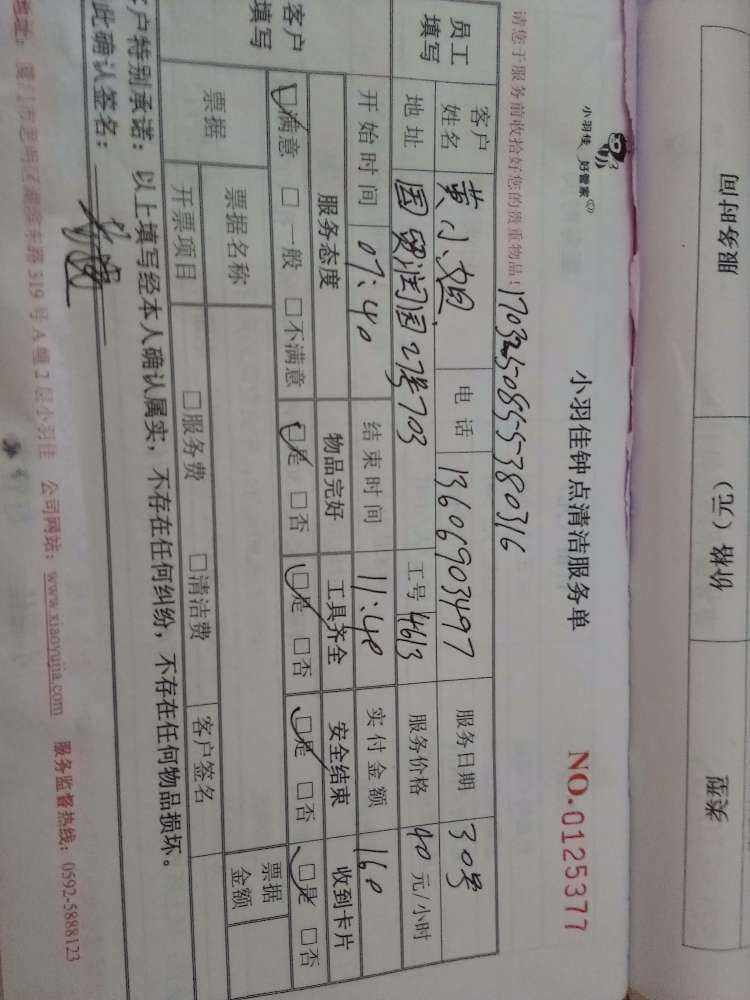 服务时间 价格（元） 类型
小羽佳 好管家
小羽佳钟点清洁服务单
NO.0125377
请您于服务前收拾好您的贵重物品！17032508555380316
员工填写 客户姓名 黄小姐 电话 13606903497 服务日期 30号
地址 国贸润园27号703 工号 4613 服务价格 40元/小时
开始时间 07:40 结束时间 11:40 实付金额 160
客户填写 服务态度 物品完好 工具齐全 安全结束 收到卡片
☑满意 □一般 □不满意 ☑是 □否 ☑是 □否 ☑是 □否 ☑是 □否
票据 票据名称 票据金额
开票项目 □服务费 □清洁费 客户签名
客户特别承诺：以上填写经本人确认属实，不存在任何纠纷，不存在任何物品损坏。
此确认签名：
地址：厦门市思明区湖滨东路319号A幢2层小羽佳 公司网站：www.xiaoyujia.com 服务监督热线：0592-5888123